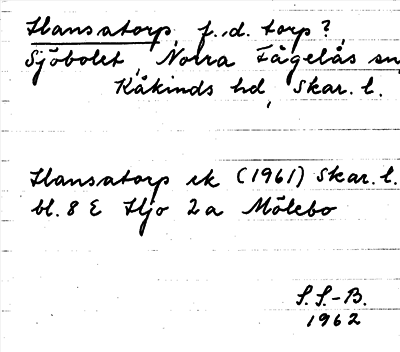 Hansatorp, f.d. torp?,
Sjöbolet, Norra Fågelås sn,
Kåkinds hd, Skar. l.
Hansatorp ek (1961) Skar. l.
bl. 8 E Hjo 2a Mölebo
S.S.-B.
1962